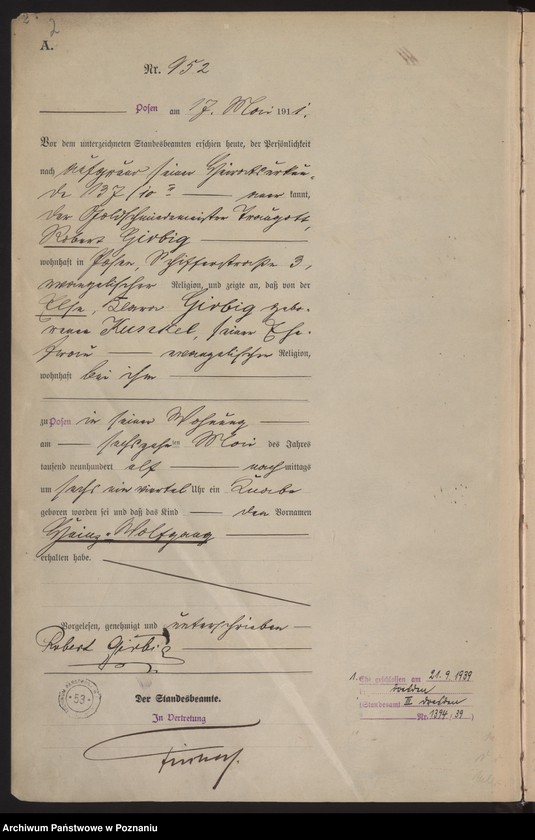 2
A.
Nr. 952
Posen am 17. Mai 1911.
Vor dem unterzeichneten Standesbeamten erschien heute, der Persönlichkeit
nach auf Grund seiner Heiratsurkun-
de 137/10 kannt,
der Goldschmiedemeister Traugott,
Robert Girbig
wohnhaft in Posen, Schifferstraße 3,
evangelischer Religion, und zeigte an, daß von der
Else, Klara Girbig gebo-
renen Kunkel, seiner Ehe-
frau evangelischer Religion,
wohnhaft bei ihm
zu Posen in seiner Wohnung
am sechszehnten Mai des Jahres
tausend neunhundert elf nachmittags
um sechs ein viertel Uhr ein Knabe
geboren worden sei und daß das Kind den Vornamen
Heinz-Wolfgang
erhalten habe.
Vorgelesen, genehmigt und unterschrieben
Robert Girbig
Der Standesbeamte.
In Vertretung
53
1. Ehe geschlossen am 21.9.1939
Dresden
Standesamt III Dresden
Nr. 1394/39
Archiwum Państwowe w Poznaniu